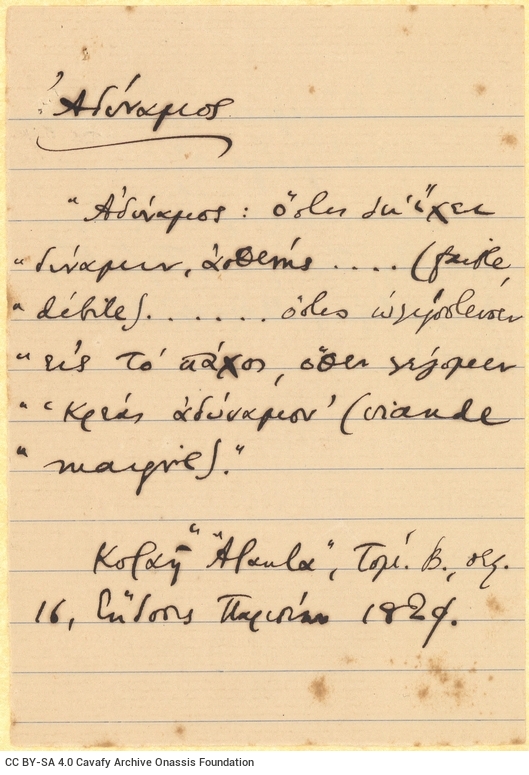 Ἀδύναμος
"Ἀδύναμος: ὅστις δὲν ἔχει
"δύναμιν, ἀσθενής .... (faible
"débile)....... ὅστις
"εἰς τὸ πάχος, ὅθεν λέγομεν
"'κρέας ἀδύναμον' (viande
"maigre)."
Κοραῆ "Ἄτακτα", Τομ. Β., σελ.
16, Ἔκδοσις Παρισίων 1829.